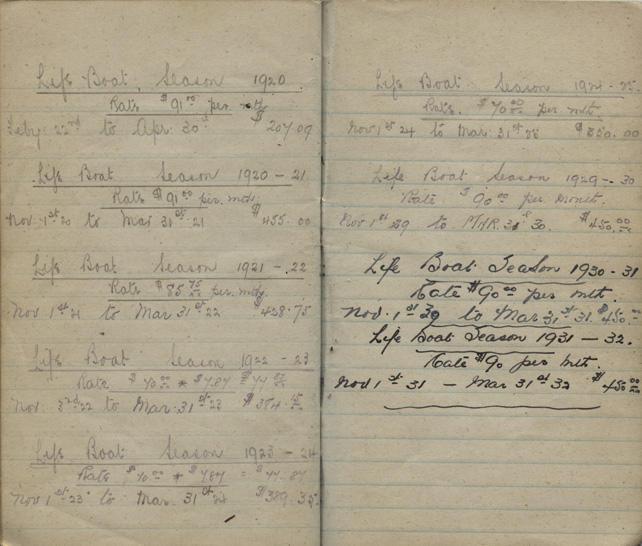 Life Boat. Season 1920
Rate $91.00 per mth
Feby. 22nd to Apr. 30th $207.09
Life Boat Season 1920-21
Rate $91.00 per mth.
Nov 1st 20 to Mar 31st 21 $455.00
Life Boat Season 1921-22
Rate $85.75 per mth
Nov 1st 21 to Mar 31st 22 $428.75
Life Boat Season 1922-23
Rate $70.00 + $7.87 $77.87
Nov. 3rd 22 to Mar. 31st 23 $384.15
Life Boat Season 1923-24
Rate $70.00 + $7.87 = $77.87
Nov 1st 23 to Mar. 31st 24 $389.35
Life Boat Season 1924-25.
Rate. $70.00 per mth
Nov 1st 24 to Mar. 31st $350.00
Life Boat Season 1929-30
Rate $90.00 per month.
Nov 1st 29 to MAR. 31st 30. $450.00
Life Boat Season 1930-31
Rate $90.00 per mth.
Nov. 1st to Mar. 31st 31. $450.00
Life Boat Season 1931-32.
Rate $90 per mth.
Nov 1st 31 - Mar 31st 32 $450.00